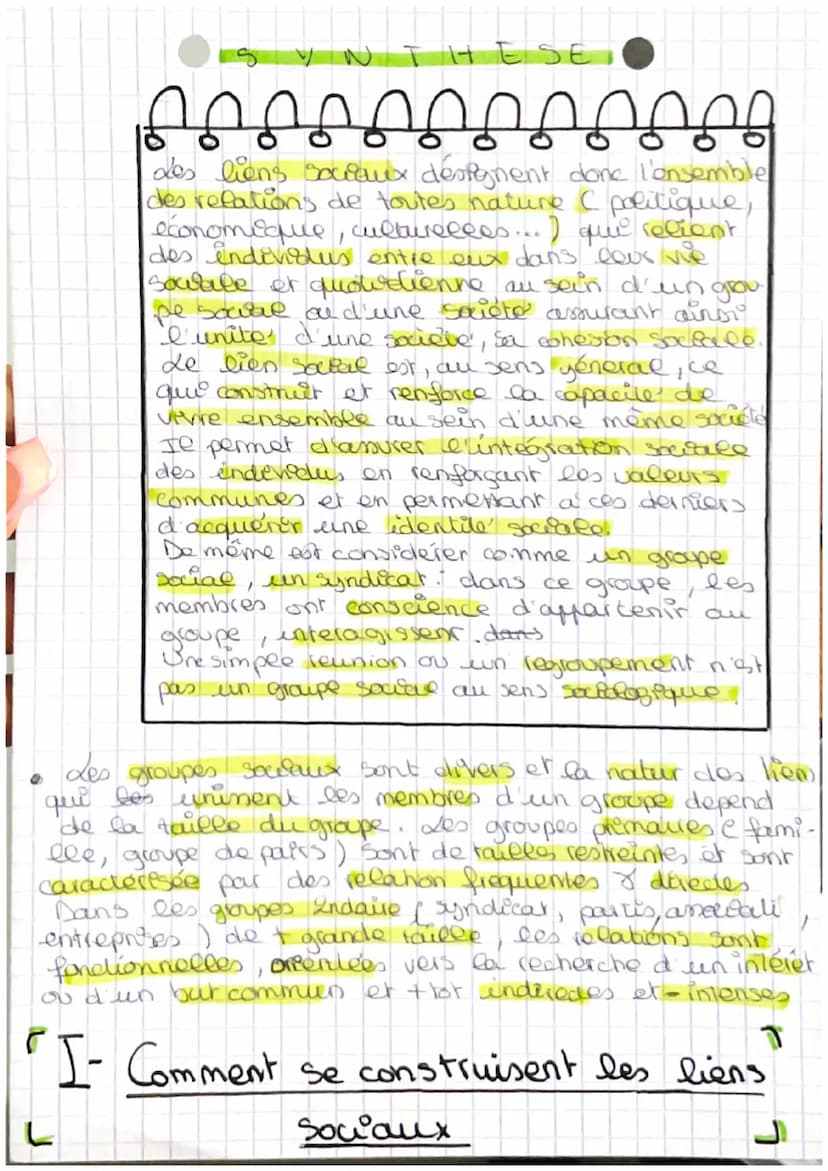 SYNTHESE
Les liens sociaux désignent donc l'ensemble
des relations de toutes nature ( politique,
économique, culturelles...) qui relient
des individus entre eux dans leur vie
sociale et quotidienne au sein d'un grou
pe social ou d'une société assurant ainsi
l'unité d'une société, sa cohésion sociale.
Le lien social est, au sens général, ce
qui construit et renforce la capacité de
vivre ensemble au sein d'une même société
Il permet d'assurer l'intégration sociale
des individus en renforçant les valeurs
communes et en permettant à ces derniers
d'acquérir une identité sociale.
De même est considérer comme un groupe
social, un syndicat : dans ce groupe, les
membres ont conscience d'appartenir au
groupe, interagissent. dans
Une simple reunion ou un regroupement n'est
pas un groupe social au sens sociologique.
• Les groupes sociaux sont divers et la natur des lien
qui les unissent les membres d'un groupe depend
de la taille du groupe. Les groupes primaires ( fami-
lle, groupe de pairs) sont de tailles restreintes et sont
caractérisée par des relation fréquentes & directes
Dans les groupes 2ndaire ( syndicat, partis,
entreprises ) de + grande taille, les relations sont
fonctionnelles, orientées vers la recherche d'un intérêt
ou d'un but commun et + tôt indirectes et - intenses
I- Comment se construisent les liens
sociaux